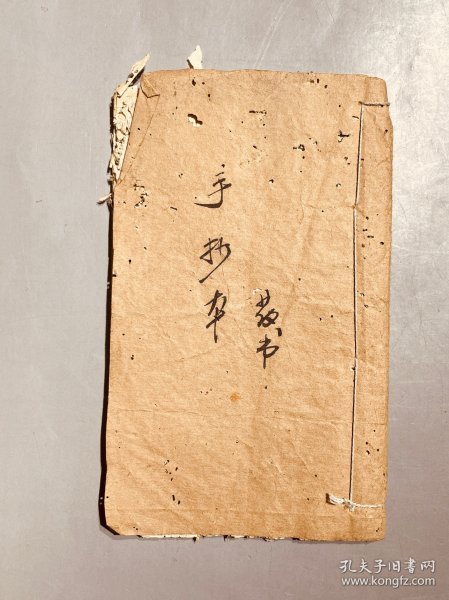 手抄本
书
孔夫子旧书网
www.kongfz.com